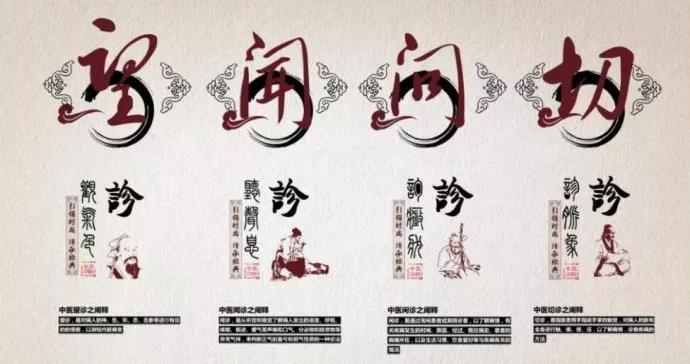 望
觀氣色
診
引领时尚 传承经典
中医望诊之阐释
望诊，是对病人的神、色、形、态、舌象等进行有目
的的观察，以测知内脏病变
闻
聽聲息
診
引领时尚 传承经典
中医闻诊之阐释
闻诊，是从听觉和嗅觉了解病人发出的语言、呼吸、
等声响和口气、分泌物和排泄物等
异常气味，来判断正气的盈亏和邪气性质的一种诊法
问
診
引领时尚 传承经典
问诊，是通过询问患者或其陪诊者，以了解病情，有
关疾病发生的时间、原因、经过、既往病史、患者的
病痛所在，以及生活习惯、饮食爱好等与疾病有关的
情况
切
診脈象
診
引领时尚 传承经典
中医切诊之阐释
切诊，是指医者用手指或手掌的触觉，对病人的脉和
全身进行触、摸、按、压，以了解病情，诊察疾病的
方法